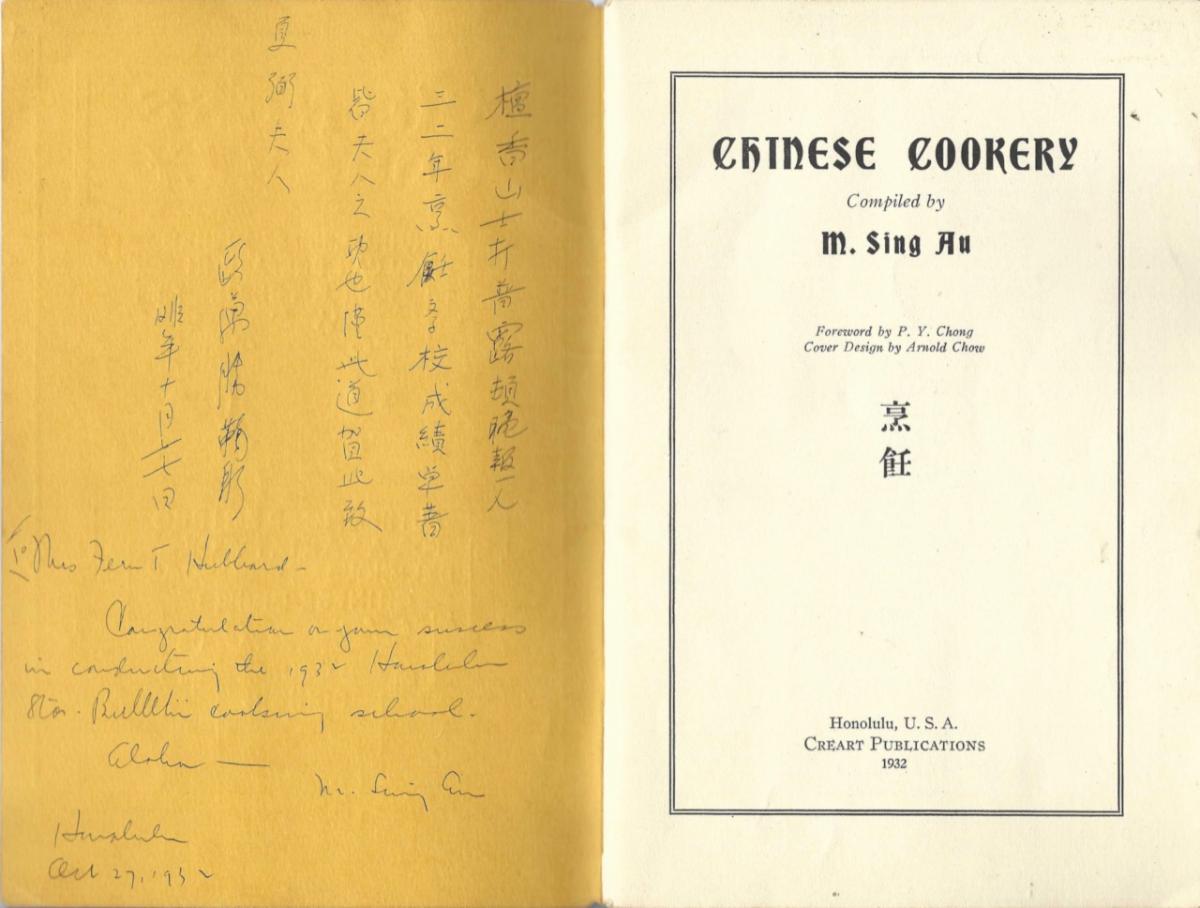 檀香山士打普露頓晚報一九
三二年烹飪学校成績卓著
皆夫人之功也僅此道賀此致
夏弼夫人
勝鞠躬
年十月廿七日
To Mrs Fern T Hubbard -
Congratulation on your success
in conducting the 1932 Honolulu
Star-Bulletin cooking school.
Aloha —
M. Sing Au
Honolulu
Oct 27, 1932
CHINESE COOKERY
Compiled by
M. Sing Au
Foreword by P. Y. Chong
Cover Design by Arnold Chow
烹
飪
Honolulu, U. S. A.
CREART PUBLICATIONS
1932